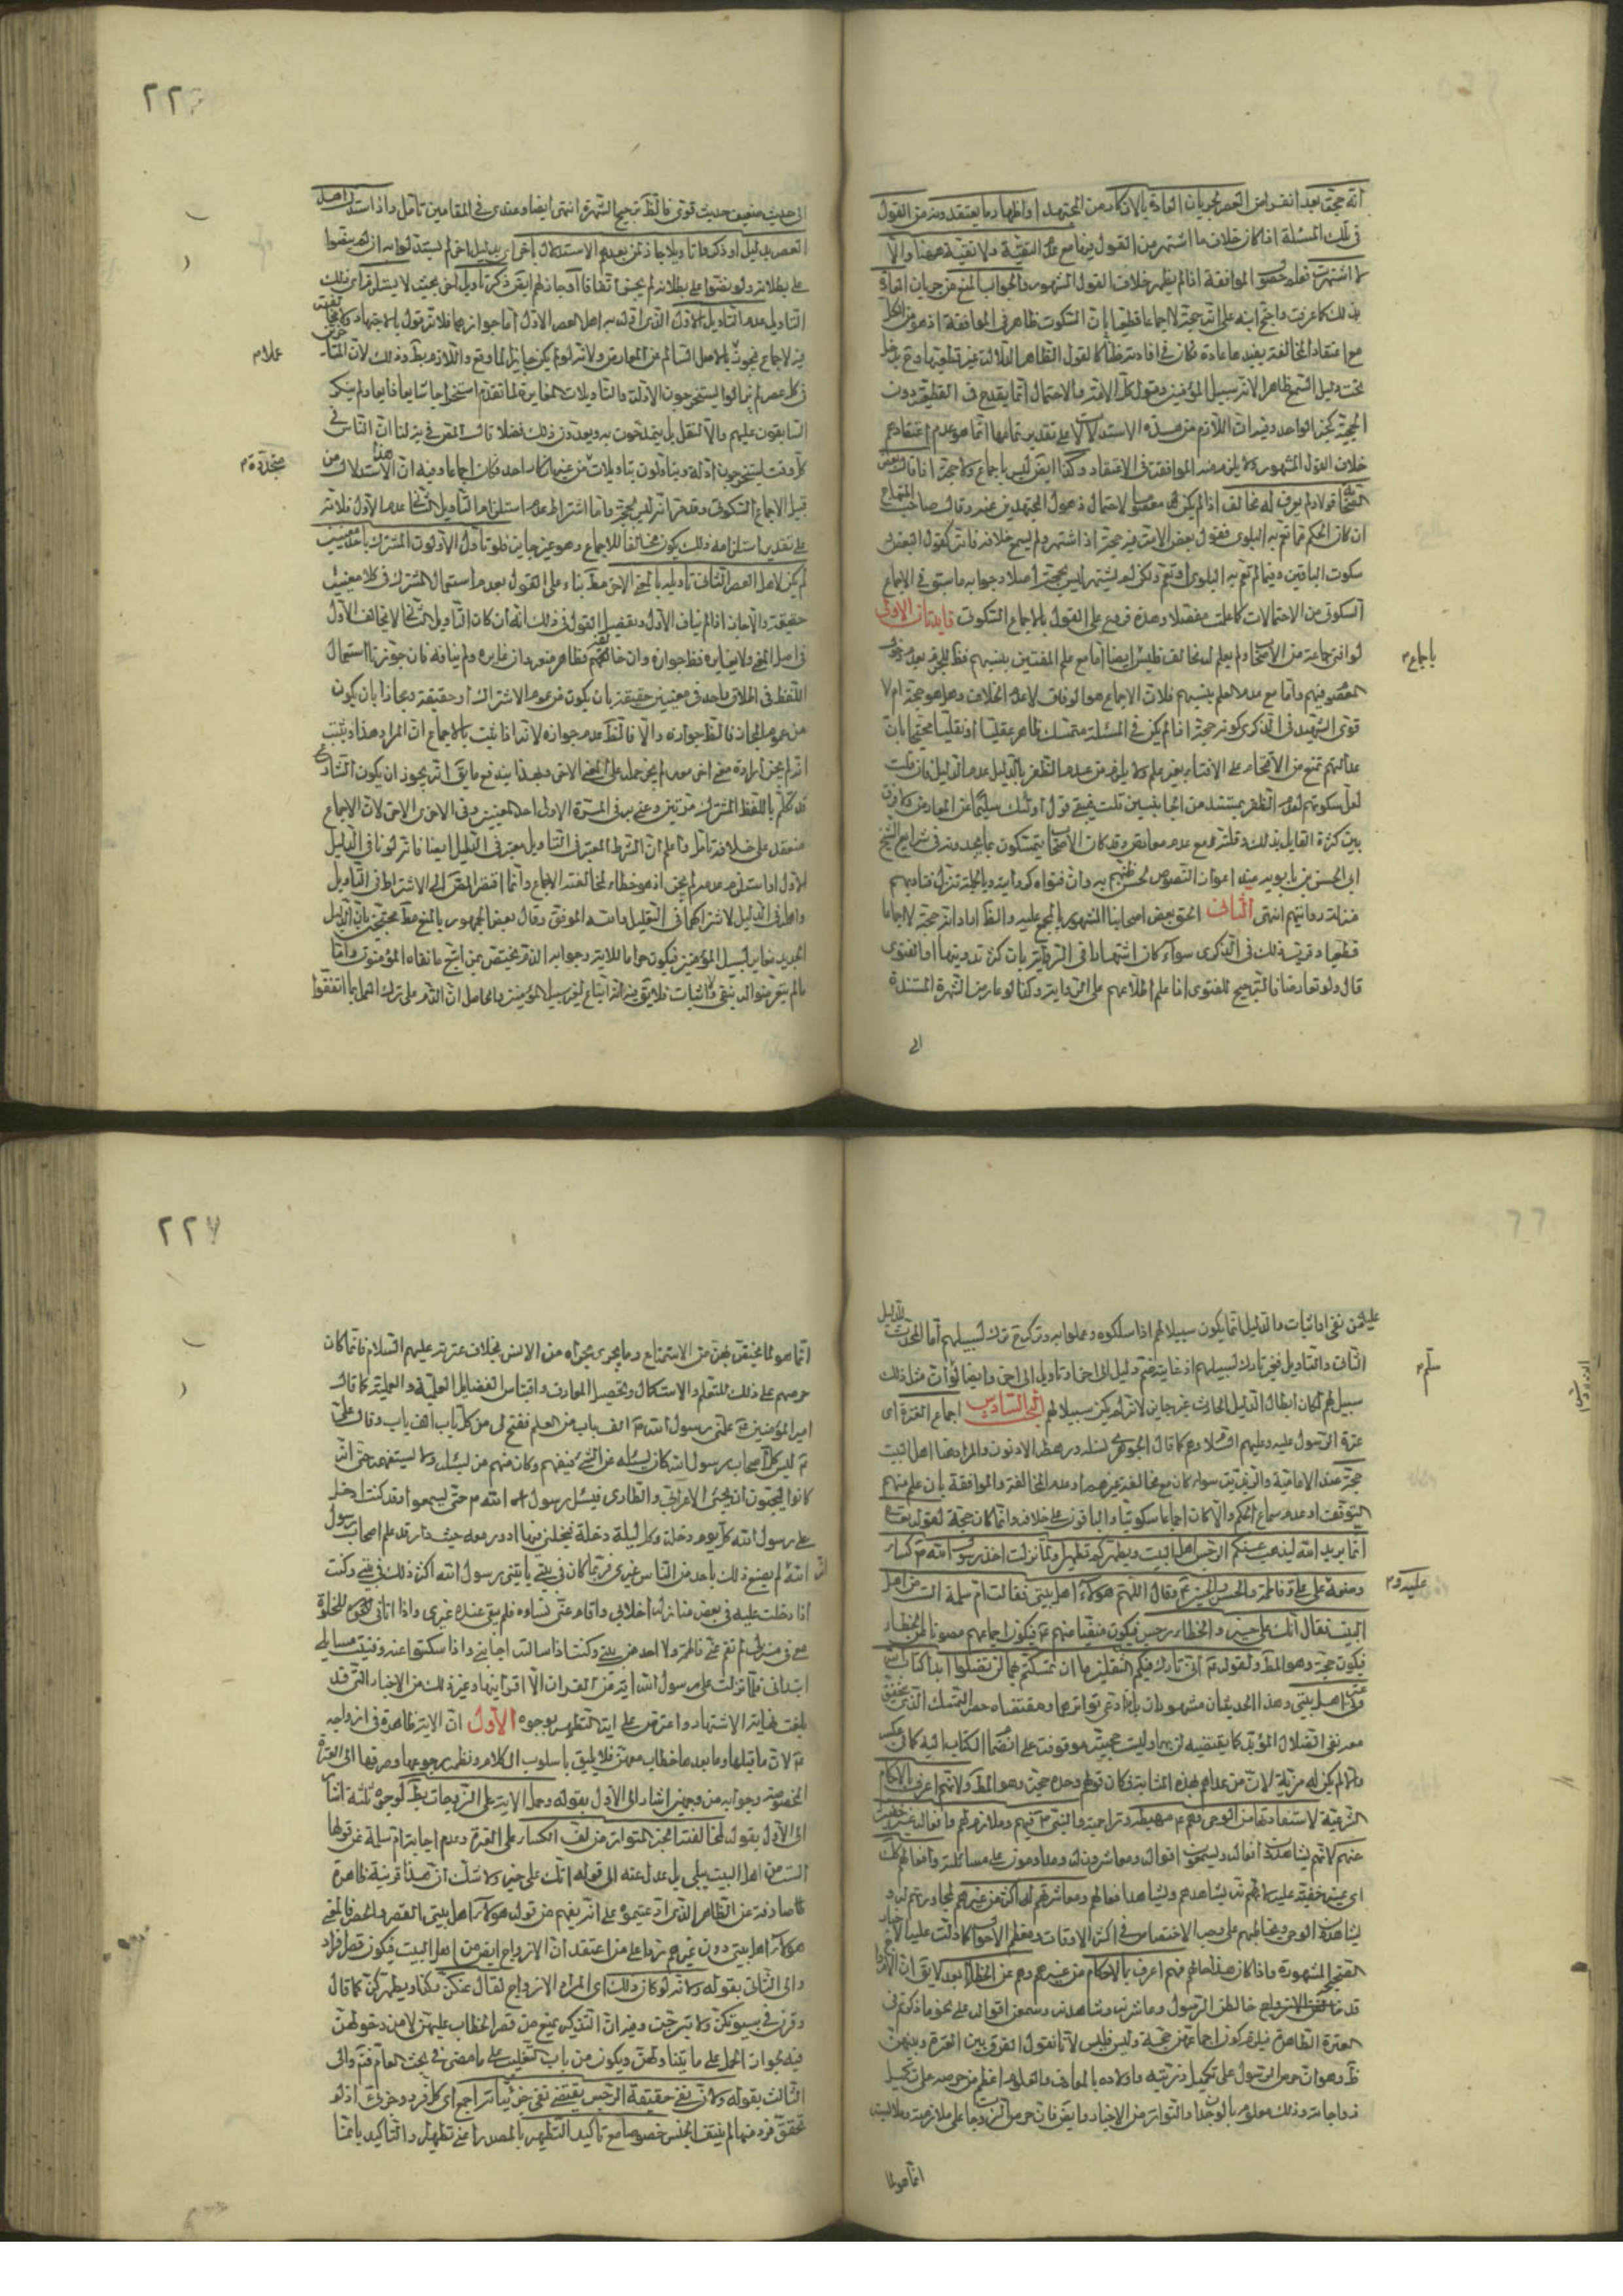 انه حجة بعد انقراض العصر لجريان العادة بالانكار من المجتهد او اظهار ما يعتقد دونه من القول
فى تلك المسئلة اذا كان خلاف ما اشتهر من القول فيها مع عدم التقية ولا تقية هيهنا والا
لما اشتهرت فعلم حصول الموافقة اذا لم يظهر خلاف القول المشهور والجواب المنع من جريان العادة
بذلك كما عرفت واحتج ابنه على انه حجة لا اجماعا قطعيا بان السكوت ظاهر فى الموافقة اذ
مع اعتقاد المخالفة بعيد عادة فكان فى افادته ظنا كالقول الظاهر الدلالة غير قطعيها
تحت دليل السمع ظاهرا لانه سبيل المؤمنين وقول كل الامة والاحتمال انما يقدح فى القطعية دون
الحجية كخبر الواحد وفيه ان اللازم من هذه الاستدلالات على تقدير تمامها انما هو عدم اعتقادهم
خلاف القول المشهور ولا يلزم منه الموافقة فى الاعتقاد وكذا ليس باجماع ولا حجة اذا قال بعض
الصحابة قولا ولم يعرف له مخالف اذا لم يكن معصوما لاحتمال ذهول المجتهدين عنه وقال صاحب المنهاج
ان كان الحكم مما تعم به البلوى فقول بعض الامة فيه حجة اذا اشتهر ولم يسمع خلافه فانه كقول البعض
سكوت الباقين وفيما لم تعم به البلوى او تعم ولكن لم يشتهر ليس بحجة اصلا وجوابه ما سبق فى الاجماع
السكوتى من الاحتمالات كما علمت مفصلا وهذه فروع على القول بالاجماع السكوتى فايدتان الاولى
لو افتى جماعة من الاصحاب ولم يعلم لهم مخالف فليس ايضا اما مع علم المفتين بنسبهم
باجماع م
المعصوم فيهم واما مع عدم العلم بنسبهم فلان الاجماع هو الوفاق لا عدم الخلاف وهل هو حجة ام لا
قوى الشهيد فى الذكرى كونه حجة اذا لم يكن فى المسئلة متمسك ظاهر عقليا او نقليا محتجا بان
عدالتهم تمنع من الاقتحام على الافتاء بغير علم ولا يلزم من عدم الظفر بالدليل عدم الدليل فان قلت
لعل سكوتهم لعدم الظفر بمستند من الجانبين قلت فيبقى قول اولئك سليما عن المعارض ولا فرق
بين كثرة القايل بذلك وقلته مع عدم معارض وقد كان الاصحاب يتمسكون بما يجدونه فى شرايع الشيخ
ابى الحسن بن بابويه عند اعواز النصوص لحسن ظنهم به وان فتواه كروايته وبالجملة تنزل فتاويهم
منزلة رواتهم انتهى الثانى الحق بعض اصحابنا المشهور بالمجمع عليه والظ اراد انه حجة لا اجماعا
قطعيا وقربه ذلك فى الذكرى سواء كان اشتهارا فى الرواية بان كثر تدوينها او الفتوى
قال ولو تعارضا فالترجيح للفتوى اذا علم اطلاعهم على الرواية وكذا لو عارض الشهرة المستندة
الى
٢٢٦
الى حديث ضعيف حديث قوى فالظ ترجيح الشهرة انتهى ايضا وعندى فى المقامين تامل واذا استدل اهل
العصر بدليل او ذكروا تاويلا جاز لمن بعدهم الاستدلال باخر اى بدليل اخر لم يستدلوا به ان لم ينصوا
على بطلانه ولو نصوا على بطلانه لم يجز اتفاقا وجاز لهم ايض ذكر تاويل اخر بحيث لا يستلزم اى ذلك
التاويل عدم التاويل الاول الذى ات به اهل العصر الاول اما جوازهما فلانه قول بالاجتهاد
فيه لاجماع فيجوز بالاصل السالم عن المعارض ولانه لو لم يكن جايزا لما وقع واللازم بط وذلك لان
عملا م
فى كل عصر لم يزالوا يستخرجون الادلة والتاويلات المغايرة لما تقدم استخراجا شايعا ذايعا ولم ينكر
السابقون عليهم والا لنقل بل يتمدحون به ويعدون ذلك فضلا قال المص فى يه لنا ان الناس فى
كل وقت يستخرجون ادلة ويتاولون بتاويلات من غير انكار احد فكان اجماعا وفيه ان هذا الاستدلال من
متجددة م
قبيل الاجماع السكوتى وقد مر انه ليس بحجة واما اشتراط عدم استلزام التاويل الثانى عدم الاول فلانه
على تقدير استلزامه ذلك يكون مخالفا للاجماع وهو غير جايز فلو تاول الاولون المشترك باحد معنييه
لم يكن لاهل العصر الثانى تاويله بالمعنى الاخر مط بناء على القول بعدم استعمال المشترك فى كلا معنييه
حقيقة والا جاز اذا لم يناف الاول وتفصيل القول فى ذلك انه ان كان التاويل الثانى لا يخالف الاول
فى اصل المعنى ولا يغايره فظ جوازه وان خالفهم فظاهر منعه وان غايره ولم ينافه فان جوزنا استعمال
اللفظ فى اطلاق واحد فى معنيين حقيقة بان يكون من عموم الاشتراك او حقيقة ومجازا بان يكون
من عموم المجاز فالظ جوازه والا فالظ عدم جوازه لانه اذا ثبت بالاجماع ان المراد هذا وثبت
انه لم يجز ارادة معنى اخر معه لم يجز حمله على المعنى الاخر وبهذا يندفع ما يق انه يجوز ان يكون الشارع
قد تكلم باللفظ المشترك مرتين وعنى به فى المرة الاولى احد المعنيين وفى الاخرى الاخر لان الاجماع
منعقد على خلافه تامل واعلم ان الشرط المعتبر فى التاويل معتبر فى الدليل ايضا فانه لو نافى الدليل
الاول او استلزم عدمه لم يجز اذ هو خطاء لمخالفته الاجماع وانما اقتصر المص الى الاشتراط فى التاويل
واهمل فى الدليل لاشتراكهما فى التعليل والله الموفق وقال بعض الجمهور بالمنع مط محتجين بان الدليل
الجديد مغاير لسبيل المؤمنين فيكون حراما للاية وجوابه ان الذم مختص بمن اتبع ما نفاه المؤمنون واما
ما لم يتعرضوا له بنفى ولا اثبات فلا يق فيه انه اتباع لغير سبيل المؤمنين والحاصل ان الذم على ترك العمل بما اتفقوا
عليه من نفى او اثبات والدليل انما يكون سبيلا لهم اذا سلكوه وعملوا به وتركهم ترك لسبيلهم اما المحدث للدليل
الثانى والتاويل فغير تارك لسبيلهم اذ غايته ضم دليل الى اخر او تاويل الى اخر وايضا لو ان مثل ذلك
سلم م
سبيل لهم لكان ابطال الدليل الحادث غير جايز لانه لم يكن سبيلا لهم البحث السادس اجماع العترة اى
عترة الرسول عليه وعليهم السلام وهم كما قال الجوهرى نسله ورهطه الادنون والمراد هنا اهل البيت
حجة عند الامامية والزيدية سواء كان مع مخالفة غيرهم او عدم المخالفة والموافقة بان علم منهم
التوقف او عدم سماع الحكم والا كان اجماعا سكوتيا والباقون على خلافه وانما كان حجة لقوله تعالى
انما يريد الله ليذهب عنكم الرجس اهل البيت ويطهركم تطهيرا ولما نزلت اخذ رسول الله ص كساء
ووضعه على على وفاطمة والحسن والحسين ع وقال اللهم هؤلاء اهل بيتى فقالت ام سلمة الست من اهل
عليه و م
البيت فقال انك على خير والخطاء رجس فيكون منفيا عنهم ع فيكون اجماعهم مصونا عن الخطاء
فيكون حجة وهو المط ولقوله ص انى تارك فيكم الثقلين ما ان تمسكتم بهما لن تضلوا ابدا كتاب الله
وعترتى اهل بيتى وهذا الحديثان مشهوران بل ادعى تواترهما ومقتضاه حصر التمسك الذى يتحقق
معه نفى الضلال المؤبد كما يقتضيه لن بهما وليست حجيته موقوفة على انضمام الكتاب اليه كما فى عكسه
والا لم يكن له مزية لان من عداهم بهذه المثابة فكان قولهم وحده حجة وهو المط ولانهم اعرف بالاحكام
الشرعية لاستفادتها من الوحى فهم ع مهبطه وتراجمته والنبى ص فيهم وملازم لهم وافعاله غير خفية
عنهم لانهم يشاهدون افعاله ويسمعون اقواله ومعاشرون له ومداومون على مسائلته وافعالهم كذلك
اى غير خفية عليه لانهم يشاهدهم ويشاهد افعالهم ومعاشرتهم له اكثر من غيرهم لمجاورتهم له و
يشاهدون الوحى ويخاطبهم على وجه الاختصاص فى اكثر الاوقات ومعظم الاحوال كما دلت عليه الاخبار
الصحيحة المشهورة واذا كان هذا حالهم فهم اعرف بالاحكام من غيرهم وهم عن الخطاء ابعد لا يق ان الازواج
قد خالطن الرسول وعاشرنه وشاهدنه وسمعن اقواله على نحو ما ذكرتم فى
العترة الطاهرة فيلزم كون اجماعهن حجة وليس فليس لانا نقول الفرق بين العترة وبينهن
ظ وهو ان حرص الرسول على تكميل ذريته واولاده بالمعارف والعلوم اعظم من حرصه على تكميل
زوجاته وذلك معلوم بالوجدان والتواتر من الاخبار وايض فان حرص الزوجات على ملازمته وملابسته
انما هو لما
٢٢٧
انما هو لما يختص بهن من الاستمتاع وما يجرى مجراه من الانس بخلاف عترته عليهم السلام فانما كان
حرصهم على ذلك للتعلم والاستكمال وتحصيل المعارف واقتباس الفضايل العلمية والعملية كما قال
امير المؤمنين ع علمنى رسول الله ص الف باب من العلم ففتح لى من كل باب الف باب وقال على
ع ليس كل اصحاب رسول الله كان يسئله عن الشىء فيفهم وكان منهم من يسئله ولا يستفهمه حتى ان
كانوا ليحبون ان يجئ الاعرابى والطارى فيسئل رسول الله ص حتى يسمعوا وقد كنت ادخل
على رسول الله كل يوم دخلة وكل ليلة دخلة فيخلينى فيها ادور معه حيث دار وقد علم اصحاب رسول
الله انه لم يصنع ذلك باحد من الناس غيرى فربما كان فى بيتى ياتينى رسول الله اكثر ذلك فى بيتى وكنت
اذا دخلت عليه فى بعض منازله اخلانى واقام عنى نساءه فلم يبق عنده غيرى واذا اتانى للخلوة
معى فى منزلى لم تقم عنى فاطمة ولا احد من بنى وكنت اذا سالته اجابنى واذا سكت عنه وفنيت مسايلى
ابتدانى فما نزلت على رسول الله اية من القران الا اقرانيها وغير ذلك من الاخبار التى قد
بلغت غاية الاشتهار واعترض على اية التطهير بوجوه الاول ان الاية ظاهرة فى ازواجه
ع لان ما قبلها وما بعدها خطاب معهن فلا يليق باسلوب الكلام ونظمه رجوعها وصرفها الى العترة
المخصوصة وجوابه من وجهين اشار الى الاول بقوله وحمل الاية على الزوجات بط لوجوه ثلثة اشار
الى الاول بقوله لمخالفته الخبر المتواتر من لف الكساء على العترة وعدم اجابة ام سلمة عن قولها
الست من اهل البيت ببلى بل عدل عنه الى قوله انك على خير ولا شك ان هذا قرينة ظاهرة
صارفة عن الظاهر الذى ادعيتموه على انه يفهم من قوله هؤلاء اهل بيتى القصر والحصر فالمعنى
هؤلاء اهل بيتى دون غيرهم ردا على من اعتقد ان الازواج ايض من اهل البيت فيكون قصر افراد
والى الثانى بقوله ولانه لو كان ذلك اى المراد الازواج لقال عنكن وكذا ويطهركن كما قال
وقرن فى بيوتكن ولا تبرجن وفيه ان التذكير يمنع من قصر الخطاب عليهن لا من دخولهن
فيه لجواز الحمل على ما يتناولهن ويكون من باب التغليب على ما مضى فى بحث العام فتم والى
الثالث بقوله ولان نفى حقيقة الرجس يقتضى نفى جزئياته اجمع اى كل فرد وجزئى اذ لو
تحقق فرد منها لم ينتف الجنس خصوصا مع تاكيد التطهير بالمصدر اعنى تطهيرا والتاكيد بانما